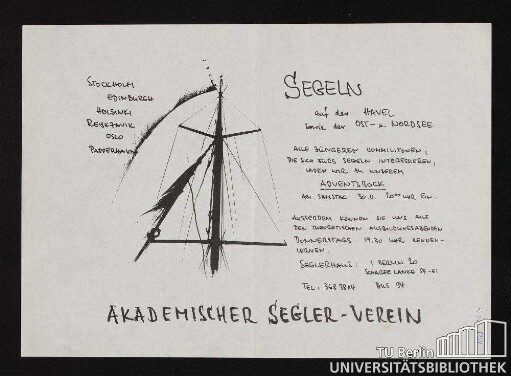 STOCKHOLM
EDINBURGH
HELSINKI
REYKJAVIK
OSLO
SEGELN
auf der HAVEL
sowie der OST- u. NORDSEE
ALLE JÜNGEREN COMMILITONEN,
DIE SICH FÜRS SEGELN INTERESSIEREN,
LADEN WIR ZU UNSEREM
ADVENTSBOCK
AM SAMSTAG 30.11. 20°° UHR EIN.
AUSSERDEM KÖNNEN SIE UNS AUF
DEN THEORETISCHEN AUSBILDUNGSABENDEN
DONNERSTAGS 19.30 UHR KENNEN-
LERNEN.
SEGLERHAUS: 1 BERLIN 20
SCHARFE LANKE
TEL: 368 3814 BUS 94
AKADEMISCHER SEGLER-VEREIN
TU Berlin
UNIVERSITÄTSBIBLIOTHEK